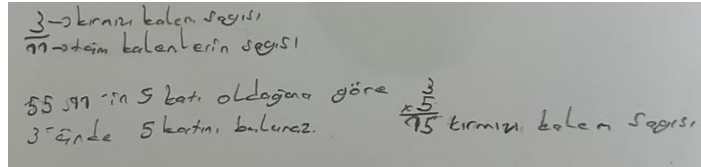 3 → kırmızı kalem sayısı
11 → tüm kalemlerin sayısı
55 11'in 5 katı olduğuna göre
3'ünde 5 katını buluruz.
3
x 5
15 kırmızı kalem sayısı